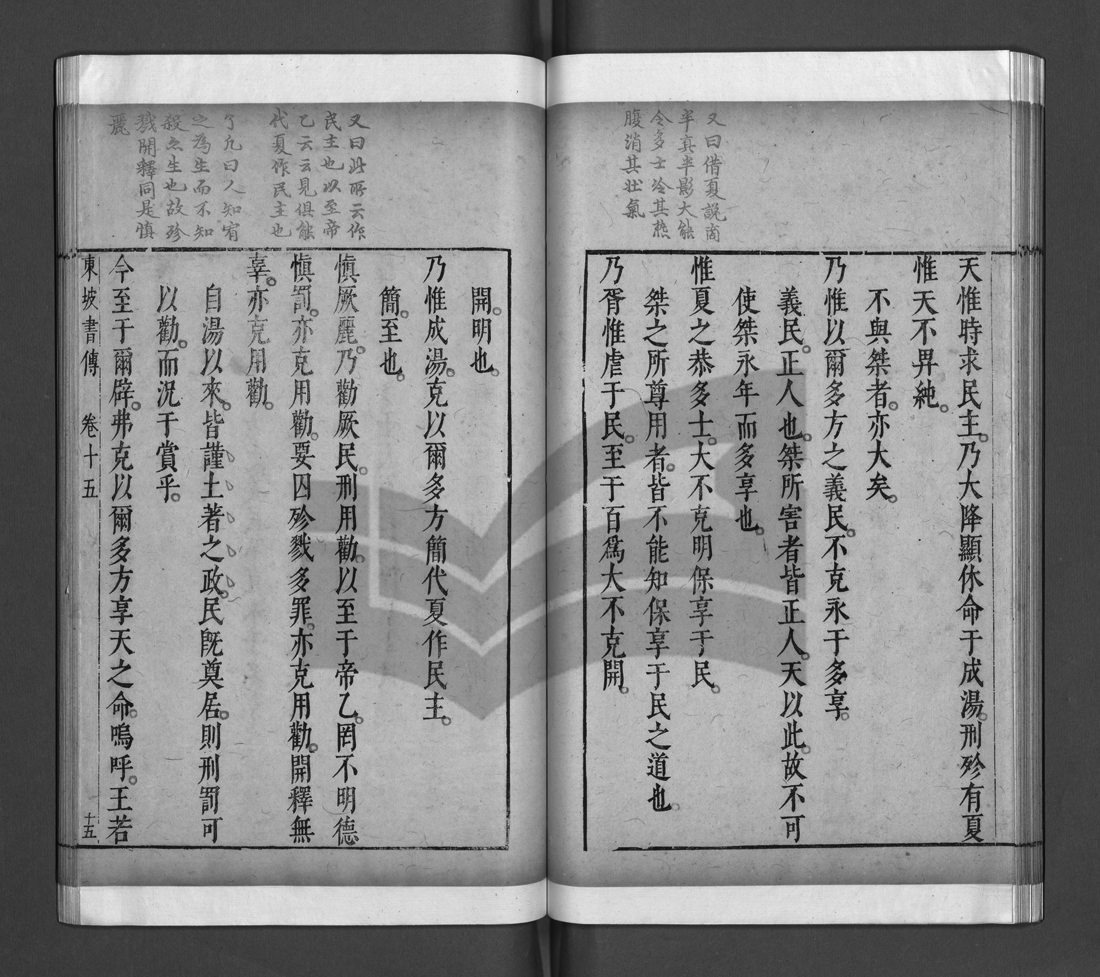 又曰借夏說商
半真半影大能
令多士冷其熱
腹消其壯氣
天惟時求民主。乃大降顯休命于成湯。刑殄有夏
惟天不畀純。
不與桀者。亦大矣。
乃惟以爾多方之義民。不克永于多享。
義民。正人也。桀所害者皆正人。天以此。故不可
使桀永年而多享也。
惟夏之恭多士。大不克明保享于民。
桀之所尊用者。皆不能知保享于民之道也。
乃胥惟虐于民。至于百爲大不克開。
又曰此所云作
民主也以至帝
乙云云見俱能
代夏作民主也
了凡曰人知宥
之為生而不知
殺之生也故殄
戮開釋同是慎
麗
開。明也。
乃惟成湯。克以爾多方簡代夏作民主。
簡。至也。
慎厥麗。乃勸厥民。刑用勸。以至于帝乙。罔不明德
慎罰。亦克用勸。要囚殄戮多罪。亦克用勸。開釋無
辜。亦克用勸。
自湯以來。皆謹土著之政。民旣奠居。則刑罰可
以勸。而況于賞乎。
今至于爾辟。弗克以爾多方享天之命。嗚呼。王若
東坡書傳 卷十五 十五